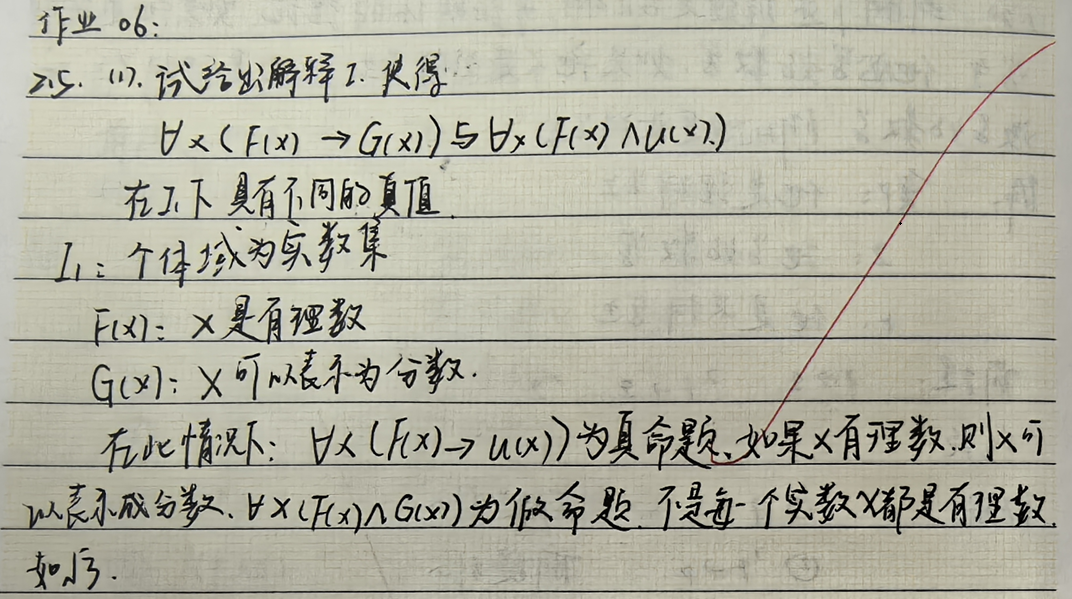 作业06:
2.5. (1). 试给出解释I. 使得
∀x(F(x)→G(x))与∀x(F(x)∧u(x))
在I₁下具有不同的真值.
I₁: 个体域为实数集
F(x): x是有理数
G(x): x可以表示为分数.
在此情况下: ∀x(F(x)→u(x))为真命题、如果x有理数.则x可
以表示成分数、∀x(F(x)∧G(x))为假命题.不是每一个实数x都是有理数.
如√3.